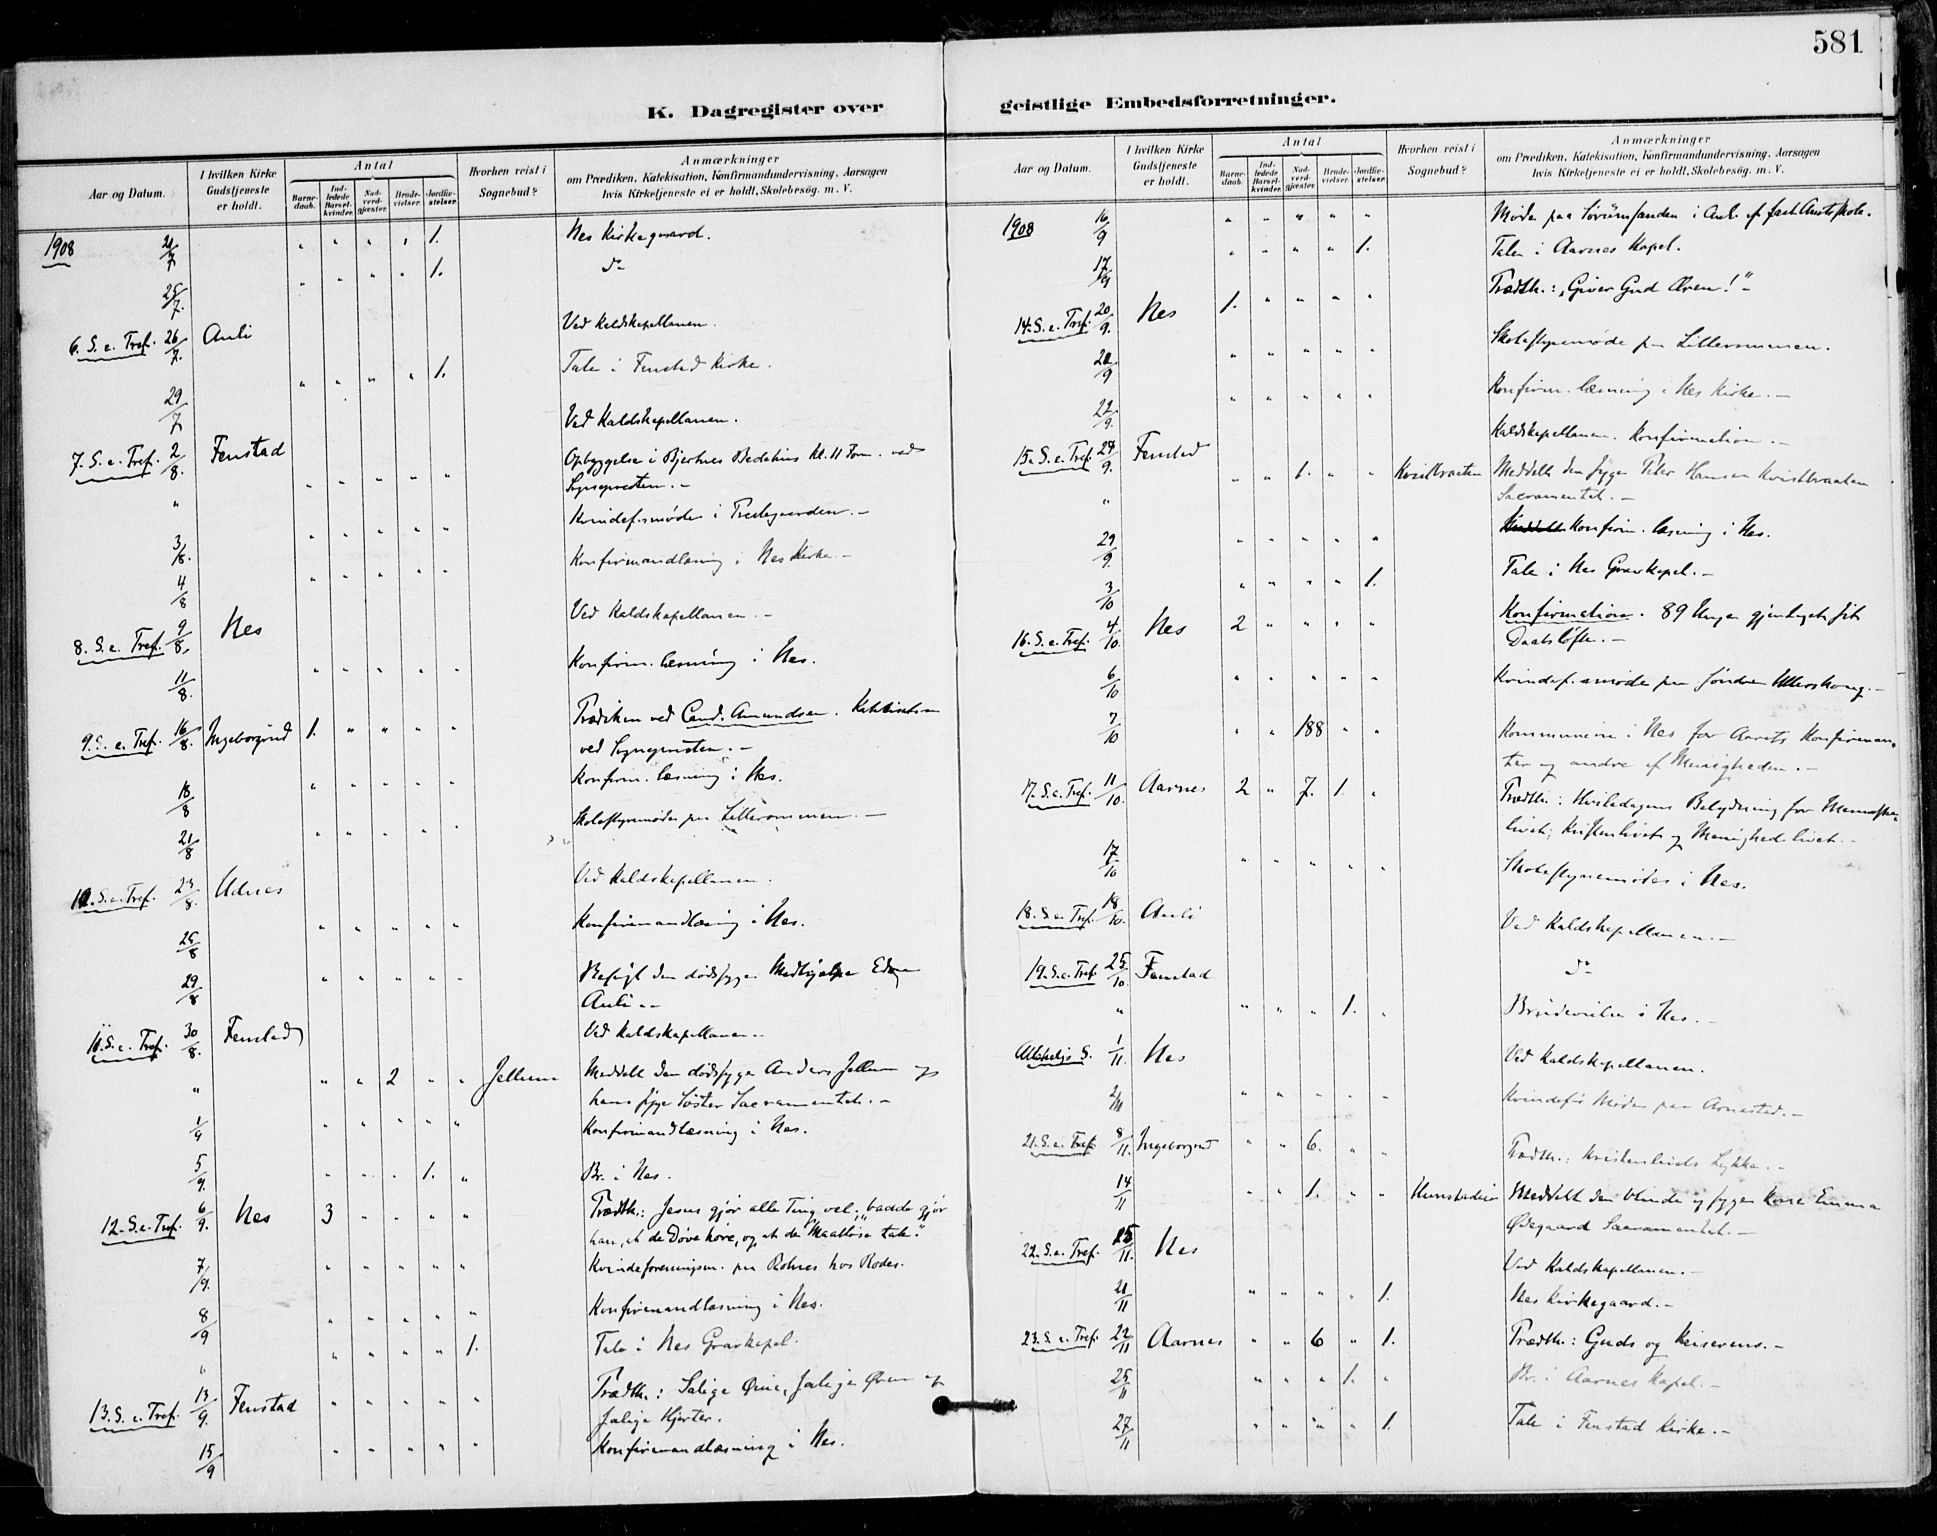 581
K. Dagregister over geistlige Embedsforretninger.
Aar og Datum.
I hvilken Kirke Gudstjeneste er holdt.
Antal
Barne-daab.
Ind-ledede Barsel-kvinder.
Nad-verd-gjester.
Brude-vielser.
Jordfæ-stelser.
Hvorhen reist i Sognebud?
Anmærkninger
om Prædiken, Katekisation, Konfirmandundervisning, Aarsagen
hvis Kirketjeneste ei er holdt, Skolebesøg. m. V.
1908 21/7 " " " " 1. Nes Kirkegaard.
25/7. " " " " 1. do
6. S. e. Tref. 26/7. Auli Ved Kaldskapellanen.
29/7 " " " " 1. Tale i Fenstad Kirke.
7. S. e. Tref. 2/8. Fenstad Ved Kaldskapellanen.
" " " " " " Opbyggelse i Bjertnes Bedehus Kl. 11 Form. ved
Sognepresten.-
3/8. " " " " " Kvindef.møde i Prestegaarden.-
4/8 " " " " " Konfirmandlæsning i Nes Kirke.-
8. S. e. Tref. 9/8. Nes Ved Kaldskapellanen.-
11/8. " " " " " Konfirm. læsning i Nes.
9. S. e. Tref. 16/8. Ingeborgrud 1. " " " " Prædiken ved Cand. Amundsen. Katekisation
ved Sognepresten.-
18/8 " " " " " Konfirm. læsning i Nes.
21/8 " " " " " Skolestyremøde paa Lillerommen.-
10. S. e. Tref. 23/8. Udnes Ved Kaldskapellanen.
25/8 " " " " " Konfirmandlæsning i Nes.
29/8 " " " " " Besøgt den dødssyge Medhjelper
Auli.-
11. S. e. Tref. 30/8. Fenstad Ved Kaldskapellanen.
" " " 2 " " Jellum Meddelt den dødssyge Anders Jellum og
hans syge Søster Sacramentet.-
1/9 " " " " " Konfirmandlæsning i Nes.
5/9. " " " 1. " Br. i Nes.
12. S. e. Tref. 6/9. Nes 3 " " " " Prædth.: Jesus gjør alle Ting vel; "baade gjør
han, at de Døve høre, og at de Maalløse tale."
7/9. " " " " " Kvindeforeningsm. paa Rohnes hos Rodes.
8/9 " " " " " Konfirmandlæsning i Nes.
" " " " " 1. Tale i Nes Gravkapel.
13. S. e. Tref. 13/9. Fenstad " " " " " Prædth.: Salige Øine, salige Øren og
salige Hjerter.
15/9 " " " " " Konfirmandlæsning i Nes.
Aar og Datum.
I hvilken Kirke Gudstjeneste er holdt.
Antal
Barne-daab.
Ind-ledede Barsel-kvinder.
Nad-verd-gjester.
Brude-vielser.
Jordfæ-stelser.
Hvorhen reist i Sognebud?
Anmærkninger
om Prædiken, Katekisation, Konfirmandundervisning, Aarsagen
hvis Kirketjeneste ei er holdt, Skolebesøg. m. V.
1908 16/9 " " " " " Møde paa Sørumsanden i Anl. af Amtsskole.
17/9 " " " " 1. Tale i Aarnes Kapel.
14. S. e. Tref. 20/9. Nes 1. " " " " Prædth.: "Giver Gud Æren!"-
21/9 " " " " " Skolestyremøde paa Lillerommen.
22/9. " " " " " Konfirm. læsning i Nes Kirke.-
15. S. e. Tref. 27/9. Fenstad Kaldskapellanen. Konfirmation.-
" " " 1. " " Kvistbraaten Meddelt den syge Peter Hansen Kvistbraaten
Sacramentet.-
29/9. " " " " " Konfirm. læsning i Nes.
3/10 " " " " 1. Tale i Nes Gravkapel.-
16. S. e. Tref. 4/10. Nes 2 " " " " Konfirmation. 89 Unge gjentoget sit
Daabsløfte.-
6/10 " " " " " Kvindef. møde paa Søndre Ullershong.-
7/10 " " 188 " " Kommunion i Nes for Aarets Konfirman-
ter og andre af Menigheden.-
17. S. e. Tref. 11/10. Aarnes 2 " 7. 1. " Prædth.: Hviledagens Betydning for Menneske-
livet, Kristenlivet og Menighedslivet.-
17/10 " " " " " Skolestyremøde i Nes.
18. S. e. Tref. 18/10. Auli Ved Kaldskapellanen.-
19. S. e. Tref. 25/10. Fenstad do
" " " " 1. " Brudevielse i Nes.-
Allehelgs S. 1/11 Nes Ved Kaldskapellanen.
2/11 " " " " " Kvindefor Møde paa Arnestad.-
21. S. e. Tref. 8/11. Ingeborgrud " " 6. " " Prædth.: Kristenlivets Lykke.-
14/11 " " 1. " " Hunstadeie Meddelt den blinde og syge Kone Emma
Ødegaard Sacramentet.-
22. S. e. Tref. 15/11. Nes Ved Kaldskapellanen.-
21/11 " " " " 1. Nes Kirkegaard.-
23. S. e. Tref. 22/11 Aarnes " " 6 " 1. Prædth.: Guds og Keiserens.-
25/11 " " " 1. " Br. i Aarnes Kapel.-
27/11 " " " " 1. Tale i Fenstad Kirke.-